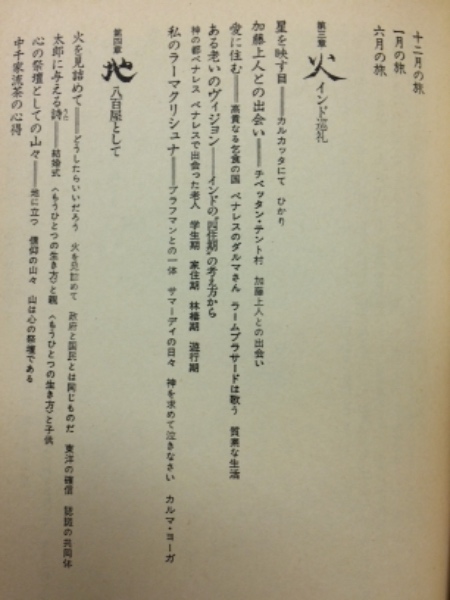 十二月の旅
一月の旅
六月の旅
第三章
火 インド巡礼
星を映す目――カルカッタにて ひかり
加藤上人との出会い――チベッタン・テント村 加藤上人との出会い
愛に住む――高貴なる乞食の国 ベナレスのダルマさん ラームプラサードは歌う 質素な生活
ある老いのヴィジョン――インドの“四住期”の考え方から
神の都ベナレス ベナレスで出会った老人 学生期 家住期 林棲期 遊行期
私のラーマクリシュナ――ブラフマンとの一体 サマーディの日々 神を求めて泣きなさい カルマ・ヨーガ
第四章
地 八百屋として
火を見詰めて――どうしたらいいだろう 火を見詰めて 政府と国民とは同じものだ 東洋の確信 認識の共同体
太郎に与える詩――結婚式 〈もうひとつの生き方〉と親 〈もうひとつの生き方〉と子供
心の祭壇としての山々――地に立つ 信仰の山々 山は心の祭壇である
中千家流茶の心得